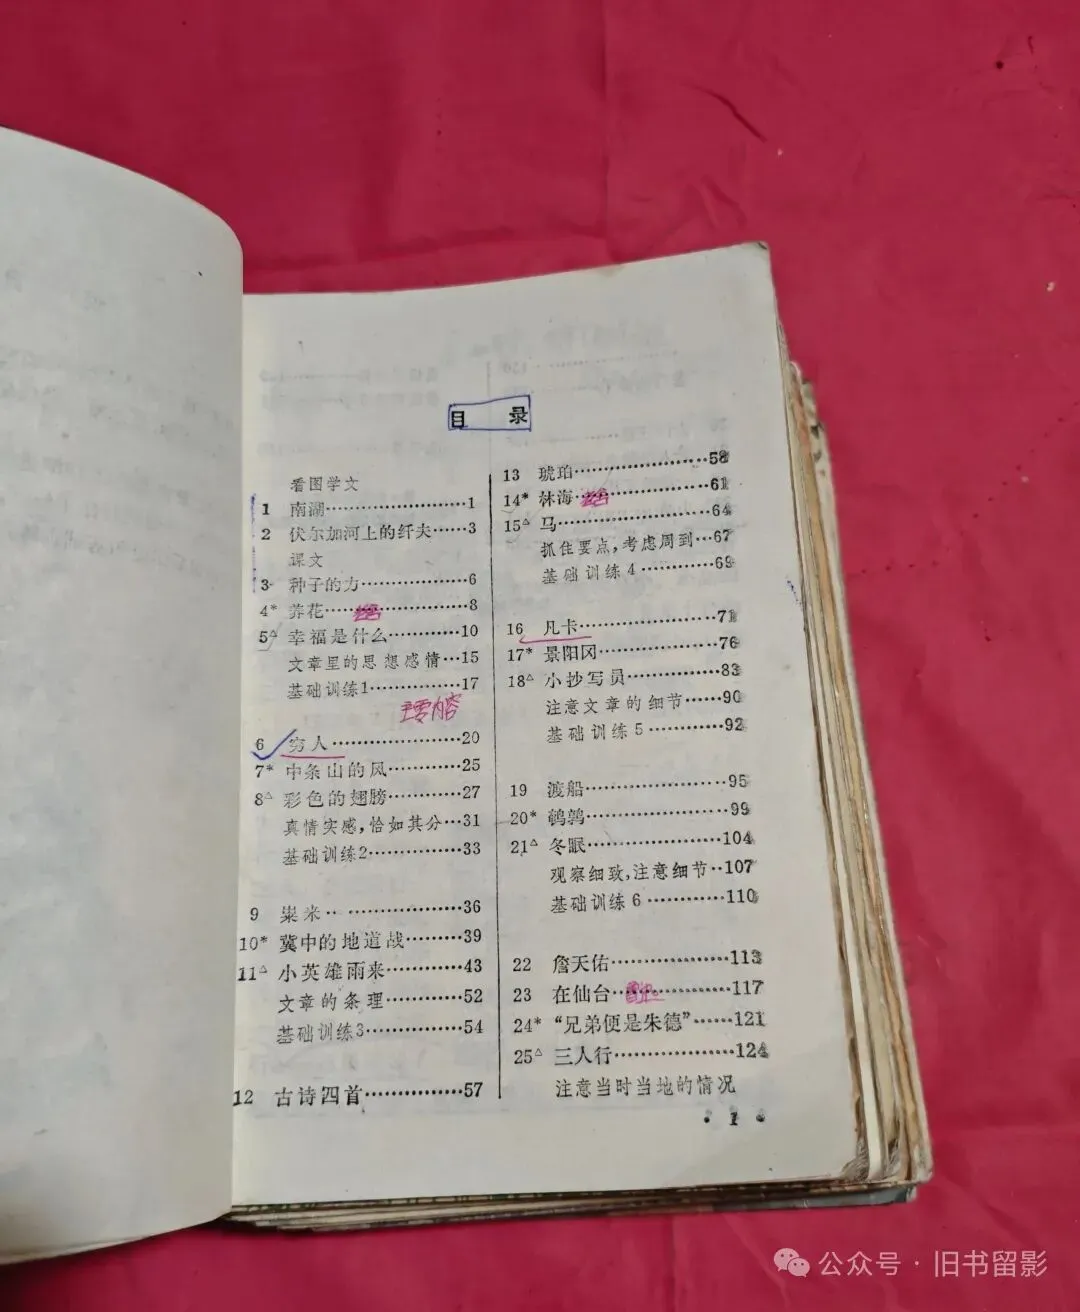 目 录
看图学文
1 南湖……………………1
2 伏尔加河上的纤夫……3
课文
3 种子的力………………6
4* 养花…………………8
5△ 幸福是什么…………10
文章里的思想感情…15
基础训练1……………17
主要内容
6 穷人…………………20
7* 中条山的风…………25
8△ 彩色的翅膀…………27
真情实感，恰如其分…31
基础训练2……………33
9 粜米…………………36
10* 冀中的地道战………39
11△ 小英雄雨来…………43
文章的条理……………52
基础训练3……………54
12 古诗四首……………57
13 琥珀…………………58
14* 林海…………………61
15△ 马……………………64
抓住要点，考虑周到…67
基础训练4……………69
16 凡卡…………………71
17* 景阳冈………………76
18△ 小抄写员……………83
注意文章的细节………90
基础训练5……………92
19 渡船…………………95
20* 鹌鹑…………………99
21△ 冬眠…………………104
观察细致，注意细节…107
基础训练6……………110
22 詹天佑………………113
23 在仙台………………117
24* “兄弟便是朱德”……121
25△ 三人行………………124
注意当时当地的情况
• 1 •
公众号·旧书留影